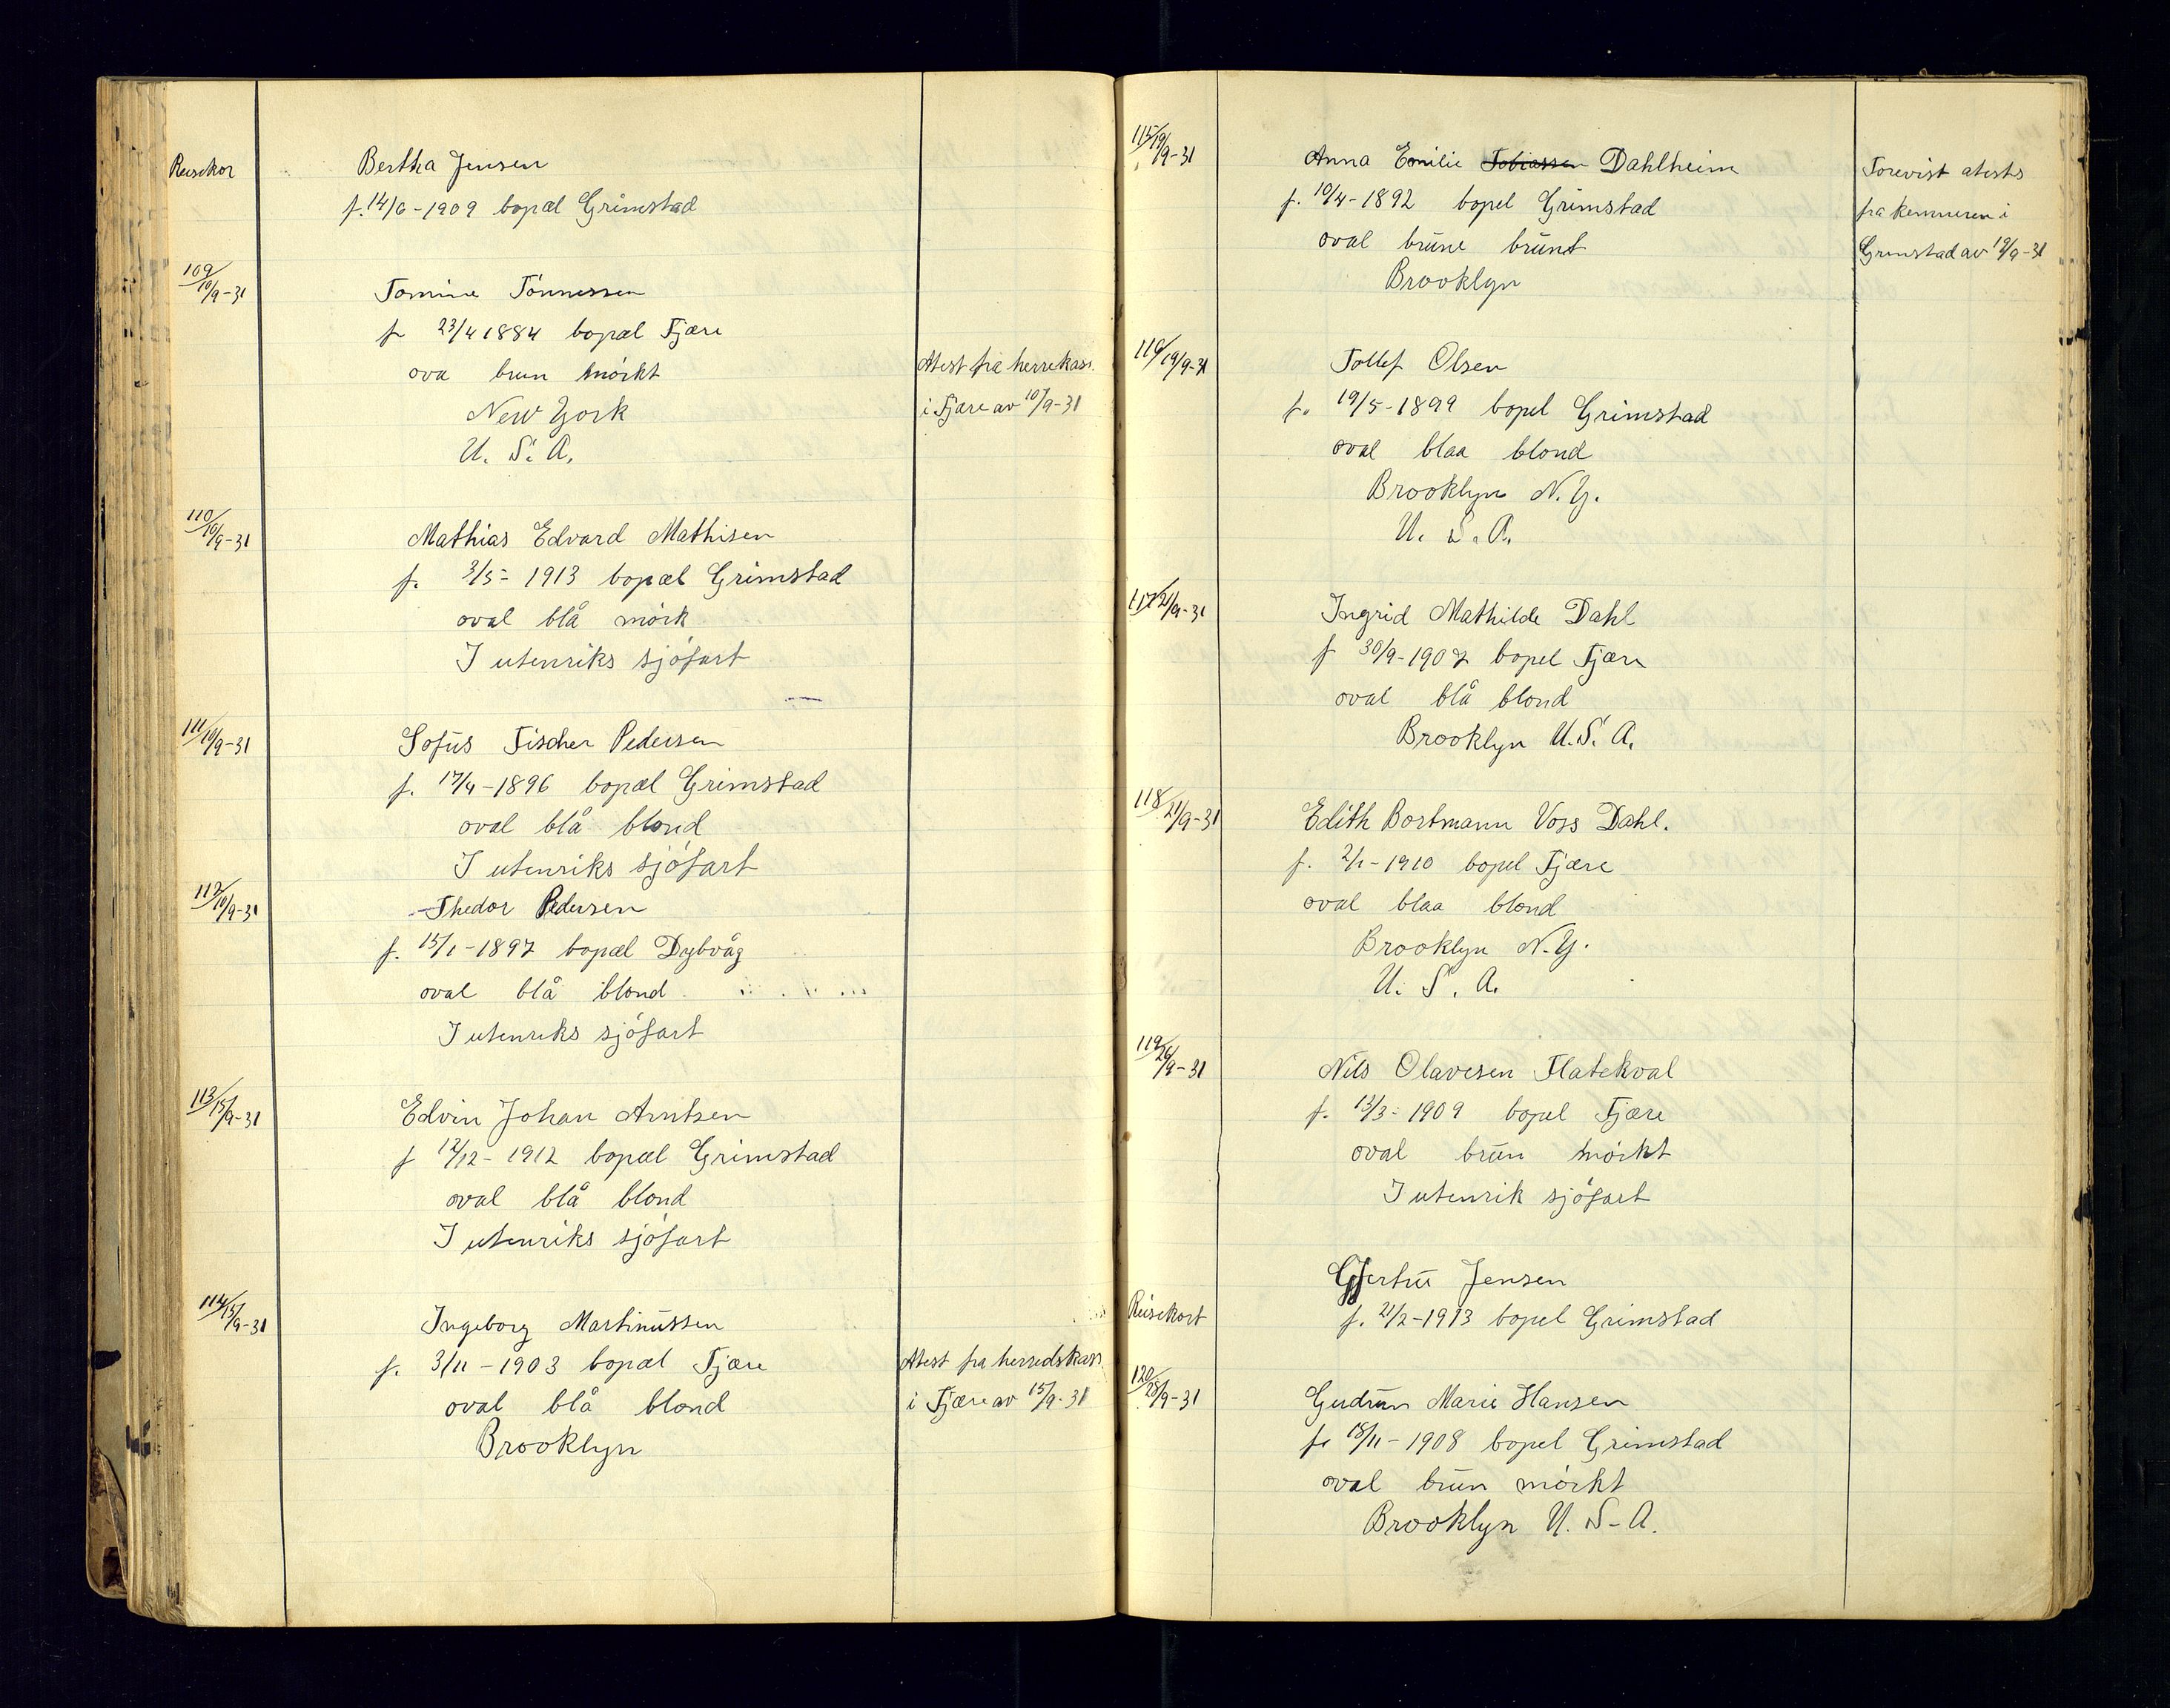 Reisekor
Bertha Jensen
f. 14/6-1909 bopæl Grimstad
109/10/9-31
Tomine Tönnessen
f 23/4 1884 bopæl Fjære
ova brun mörkt
New York
U. S. A.
Atest fra herrekass.
i Fjære av 10/9-31
110/10/9-31
Mathias Edvard Mathisen
f. 3/5- 1913 bopæl Grimstad
oval blå mörk
I utenriks sjöfart
111/10/9-31
Sofus Fischer Pedersen
f. 17/4-1896 bopæl Grimstad
oval blå blond
I utenriks sjöfart
112/10/9-31
Thedor Pedersen
f. 15/1-1897 bopæl Dybvåg
oval blå blond
I utenriks sjöfart
113/15/9-31
Edvin Johan Arntsen
f 12/12- 1912 bopæl Grimstad
oval blå blond
I utenriks sjöfart
114/15/9-31
Ingeborg Martinussen
f. 3/11-1903 bopæl Fjære
oval blå blond
Brooklyn
Atest fra herredskass.
i Fjære av 15/9-31
115/19/9-31
Anna Emilie Tobiassen Dahlheim
f. 10/4-1892 bopel Grimstad
oval brune brunt
Brooklyn
Forevist atests
fra kemneren i
Grimstad av 19/9-31
116/19/9-31
Tollef Olsen
f. 19/5-1899 bopel Grimstad
oval blaa blond
Brooklyn N.Y.
U. S. A.
117/21/9-31
Ingrid Mathilde Dahl
f 30/9-1907 bopel Fjære
oval blå blond
Brooklyn U.S.A.
118/21/9-31
Edith Bortmann Voss Dahl.
f. 2/1-1910 bopel Fjære
oval blaa blond
Brooklyn N.Y.
U. S. A.
119/26/9-31
Nils Olavesen Flatekval
f. 13/3-1909 bopel Fjære
oval brun mörkt
I utenrik sjöfart
Reisekort
Gjertru Jensen
f. 21/2-1913 bopel Grimstad
120/28/9-31
Gudrun Marie Hansen
f. 18/11-1908 bopel Grimstad
oval brun mörkt
Brooklyn U. S-A.